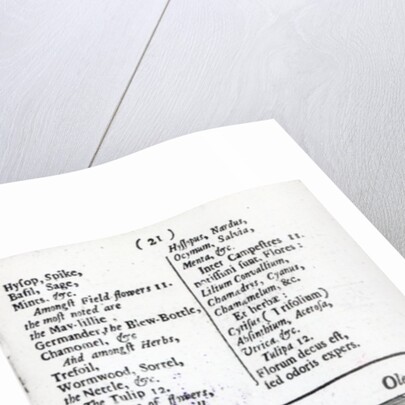 ( 21 )
Hyſop, Spike,
Baſil, Sage,
Mints, &c.
Amongſt Field flowers 11.
the moſt noted are
the May-lillie,
Germander, the Blew-Bottle,
Chamomel, &c.
And amongſt Herbs,
Trefoil,
Wormwood, Sorrel,
the Nettle, &c.
The Tulip 12.
of flowers,
Hyſſopus, Nardus,
Ocymum, Salvia,
Menta, &c.
Inter Campeſtres 11.
notiſſimi ſunt, Flores:
Lilium Convallium,
Chamædrys, Cyanus,
Chamæmelum, &c.
Et herbæ:
Cytiſus (Trifolium)
Abſinthium, Acetoſa,
Urtica, &c.
Tulipa 12.
Florum decus eſt,
ſed odoris expers.